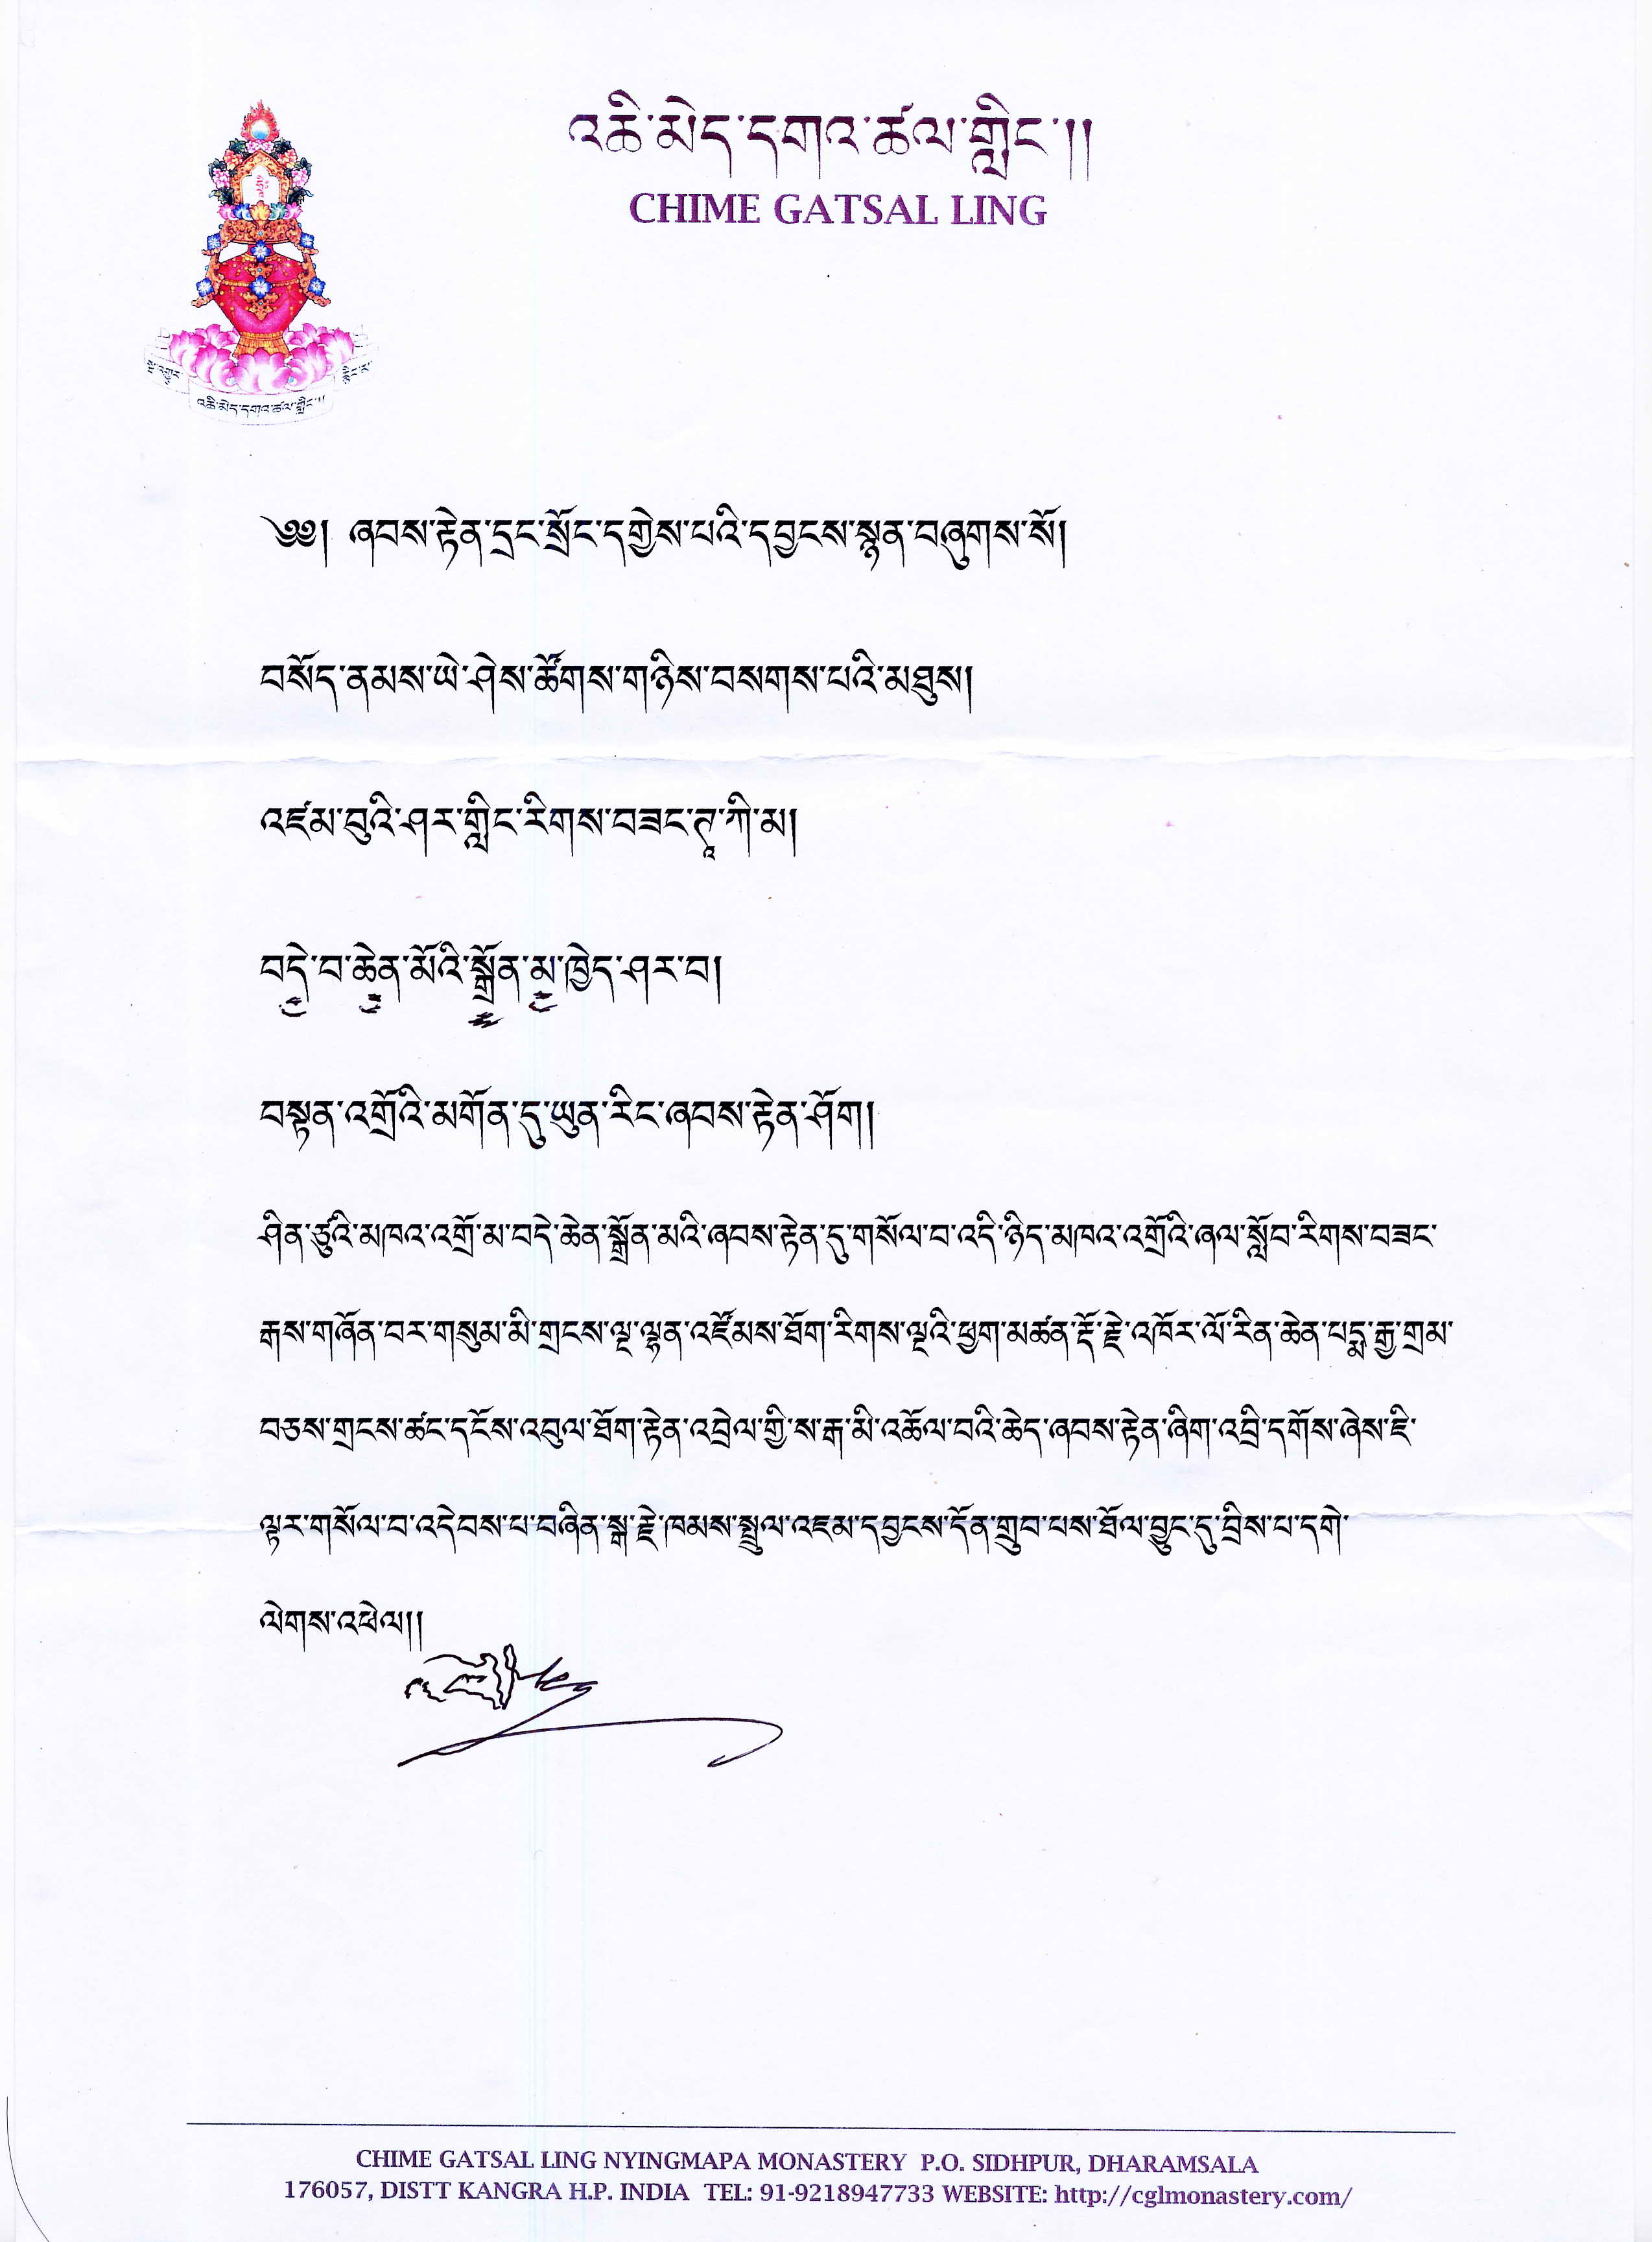 འཆི་མེད་དགའ་ཚལ་གླིང་།།
CHIME GATSAL LING
སྔ་འགྱུར་
རྙིང་མ་
འཆི་མེད་དགའ་ཚལ་གླིང་།།
༄༅། ཞབས་རྟེན་དྲང་སྲོང་དགྱེས་པའི་དབྱངས་སྙན་བཞུགས་སོ།
བསོད་ནམས་ཡེ་ཤེས་ཚོགས་གཉིས་བསགས་པའི་མཐུས།
འཛམ་བུའི་ཤར་གླིང་རིགས་བཟང་ཌཱ་ཀི་མ།
བདེ་བ་ཆེན་མོའི་སྒྲོན་མ་ཁྱེད་ཤར་བ།
བསྟན་འགྲོའི་མགོན་དུ་ཡུན་རིང་ཞབས་རྟེན་ཤོག།
ཤིན་ཙུའི་མཁའ་འགྲོ་མ་བདེ་ཆེན་སྒྲོན་མའི་ཞབས་རྟེན་དུ་གསོལ་བ་འདི་ཉིད་མཁའ་འགྲོའི་ཞལ་སློབ་རིགས་བཟང་
རྒས་གཞོན་བར་གསུམ་མི་གྲངས་ལྔ་ལྷན་འཛོམས་ཐོག་རིགས་ལྔའི་ཕྱག་མཚན་རྡོ་རྗེ་འཁོར་ལོ་རིན་ཆེན་པདྨ་རྒྱ་གྲམ་
བཅས་གྲངས་ཚང་དངོས་འབུལ་ཐོག་རྟེན་འབྲེལ་གྱི་ས་རྒ་མི་འཆོལ་བའི་ཆེད་ཞབས་རྟེན་ཞིག་འབྲི་དགོས་ཞེས་ཇི་
ལྟར་གསོལ་བ་འདེབས་པ་བཞིན་སྒ་རྗེ་ཁམས་སྤྲུལ་འཇམ་དབྱངས་དོན་གྲུབ་པས་ཐོལ་བྱུང་དུ་བྲིས་པ་དགེ་
ལེགས་འཕེལ།།
CHIME GATSAL LING NYINGMAPA MONASTERY P.O. SIDHPUR, DHARAMSALA
176057, DISTT KANGRA H.P. INDIA TEL: 91-9218947733 WEBSITE: http://cglmonastery.com/